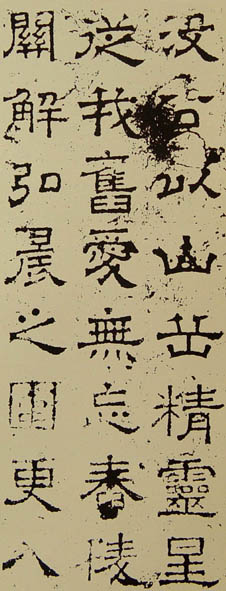 没以山岳精靈星
從我舊愛無忘舂陵
關解弘晨之更八